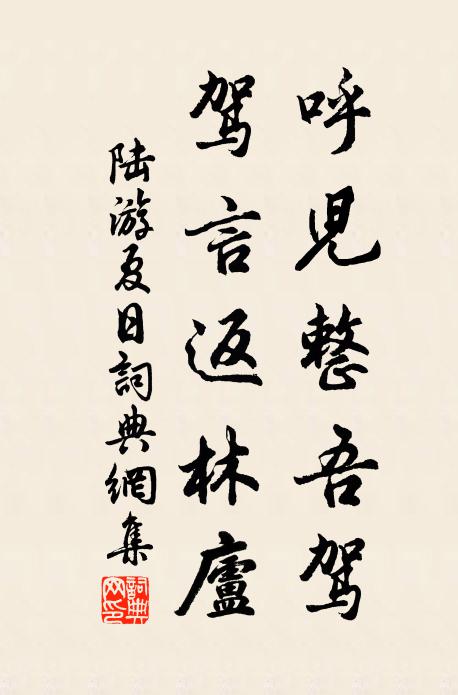 呼児整吾駕
駕言返林廬
陸游夏日詞典網集
詞典
网印